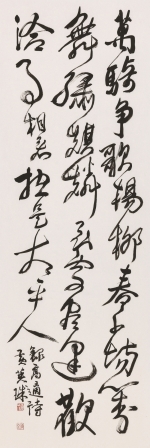 萬騎爭歌楊柳春千場對
舞繡騏驎到處盡逢歡
洽事相看總是太平人
錄高適詩